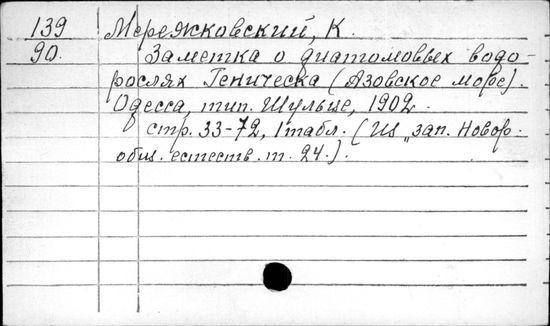 139 Мережковский, К.
90. Заметка о диатомовых водо-
рослях Геническа (Азовское море).
Одесса, тип. Шульце, 1902.
стр. 33-72, 1 табл. (Из „зап. Новор.
общ. естеств. т. 24.).